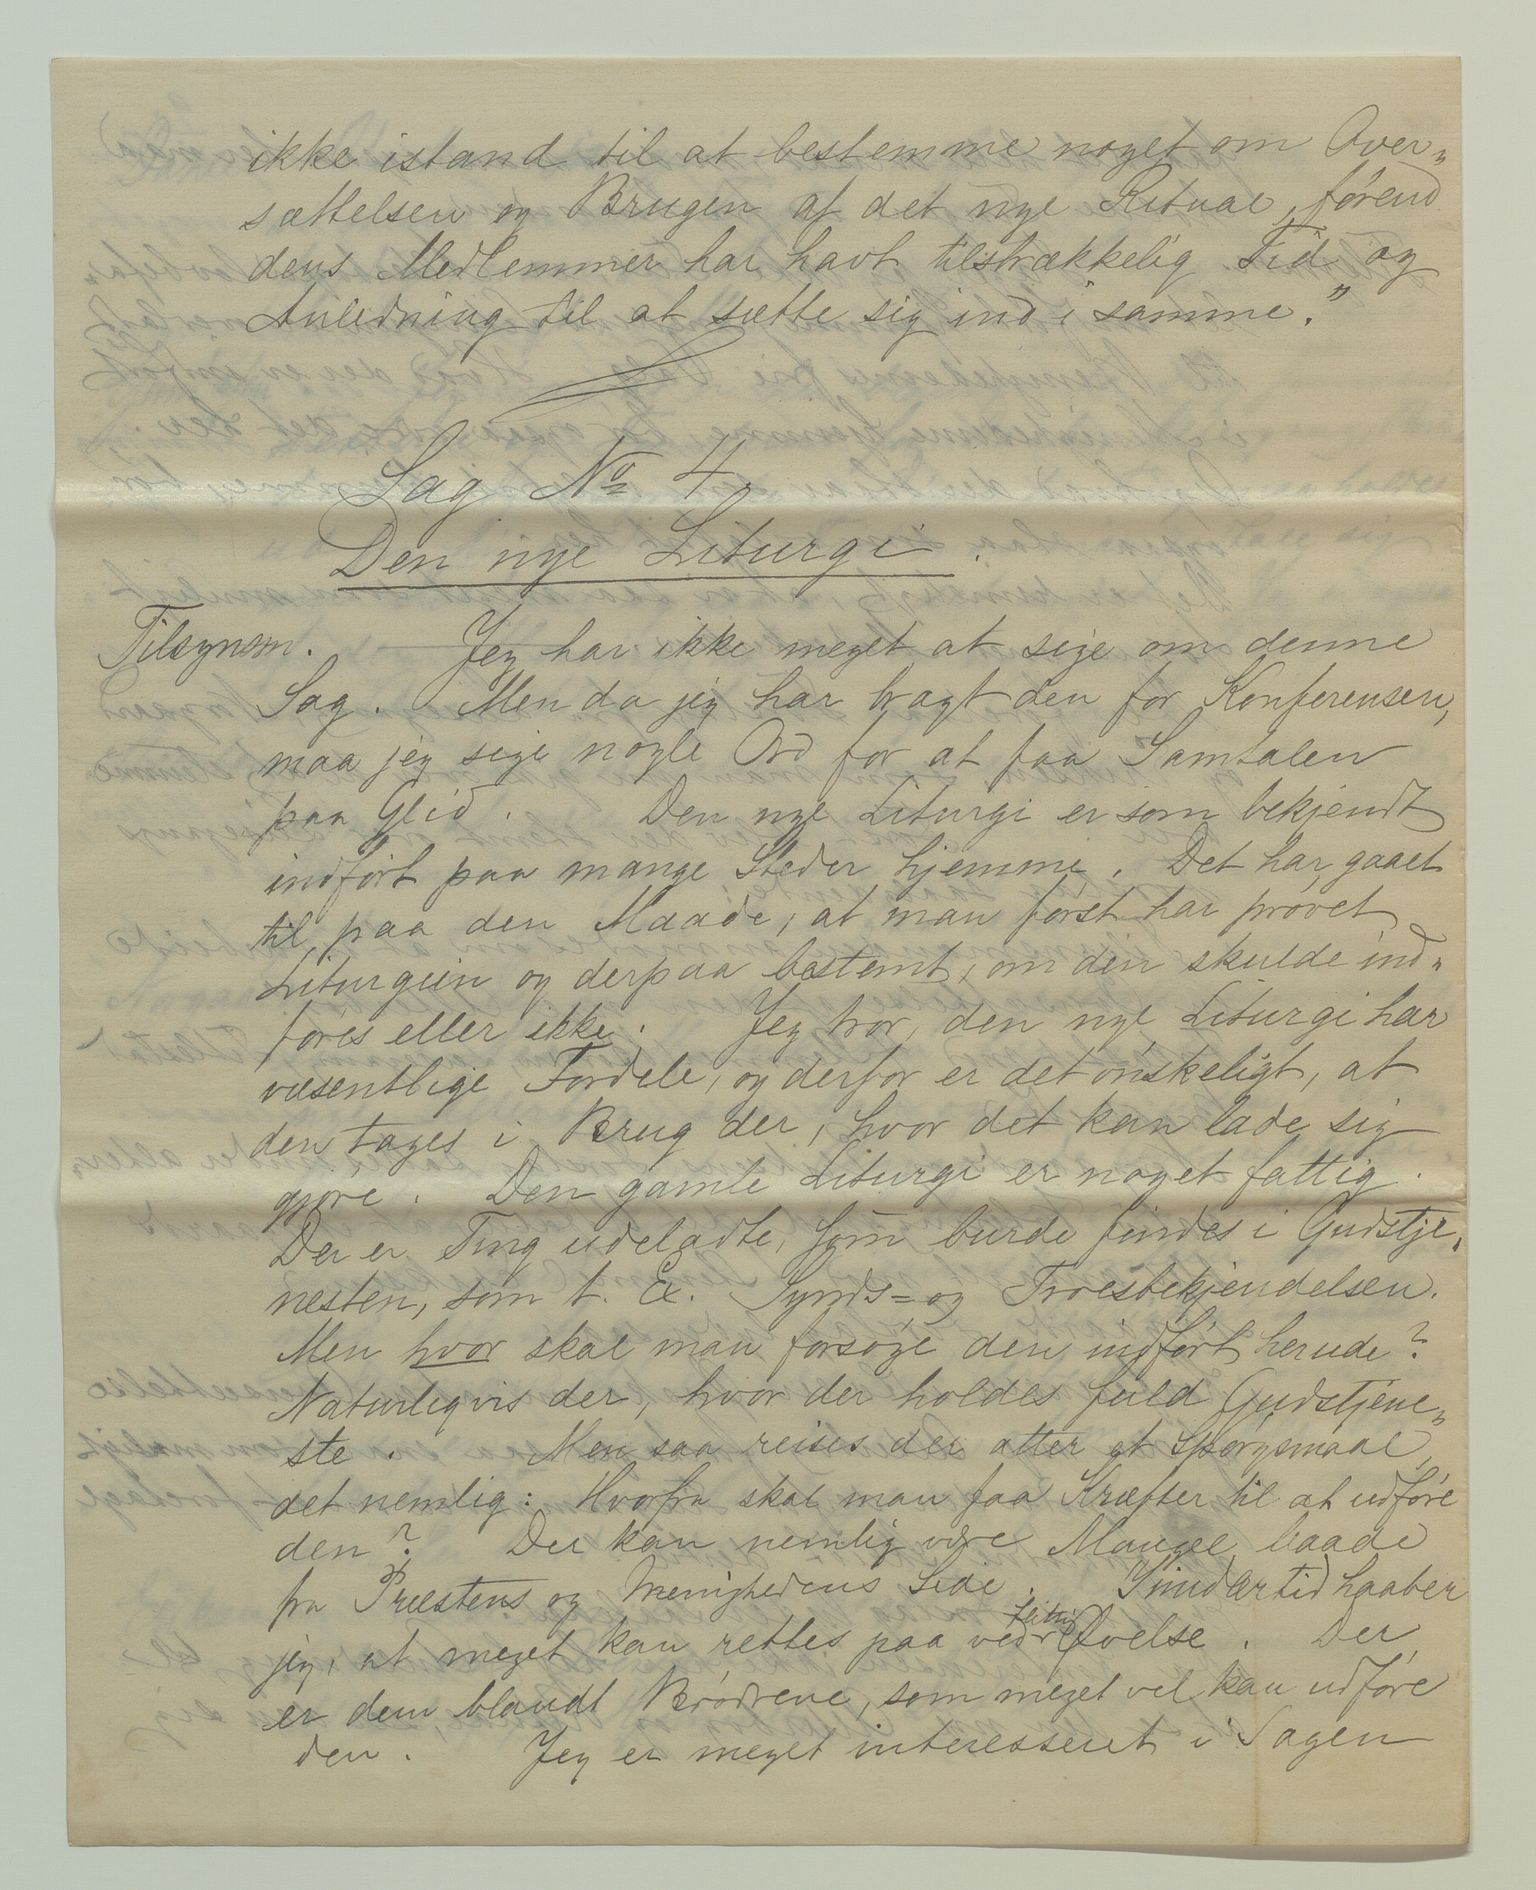 ikke istand til at bestemme noget om Over„
sættelsen og Brugen af det nye Ritual, förend
dens Medlemmer har havt tilstrækkelig Tid og
Anledning til at sætte sig ind i samme."
Sag No 4.
Den nye Liturgi.
Tilsynsm. Jeg har ikke meget at sige om denne
Sag. Men da jeg har bragt den for Konferensen,
maa jeg sige nogle Ord for at faa Samtalen
paa Glid. Den nye Liturgi er som bekjendt
indfört paa mange Steder hjemme. Det har gaaet
til paa den Maade, at man först har prövet
Liturgien og derpaa bestemt, om den skulde ind„
föres eller ikke. Jeg tror, den nye Liturgi har
væsentlige Fordele, og derfor er det önskeligt, at
den tages i Brug der, hvor det kan lade sig
gjöre. Den gamle Liturgi er noget fattig.
Der er Ting udeladte, som burde findes i Gudstje„
nesten, som t. Ex. Synds= og Troesbekjendelsen.
Men hvor skal man forsöge den indfört herude?
Naturligvis der, hvor der holdes fuld Gudstjene„
ste. Men saa reises der atter et Spörgsmaal,
det nemlig: Hvorfra skal man faa Kræfter til at udföre
den? Der kan nemlig være Mangel baade
fra Præstens og Menighedens Side. Imidlertid haaber
jeg, at meget kan rettes paa ved flittig Övelse. Der
er dem blandt Brödrene, som meget vel kan udföre
den. Jeg er meget interesseret i Sagen